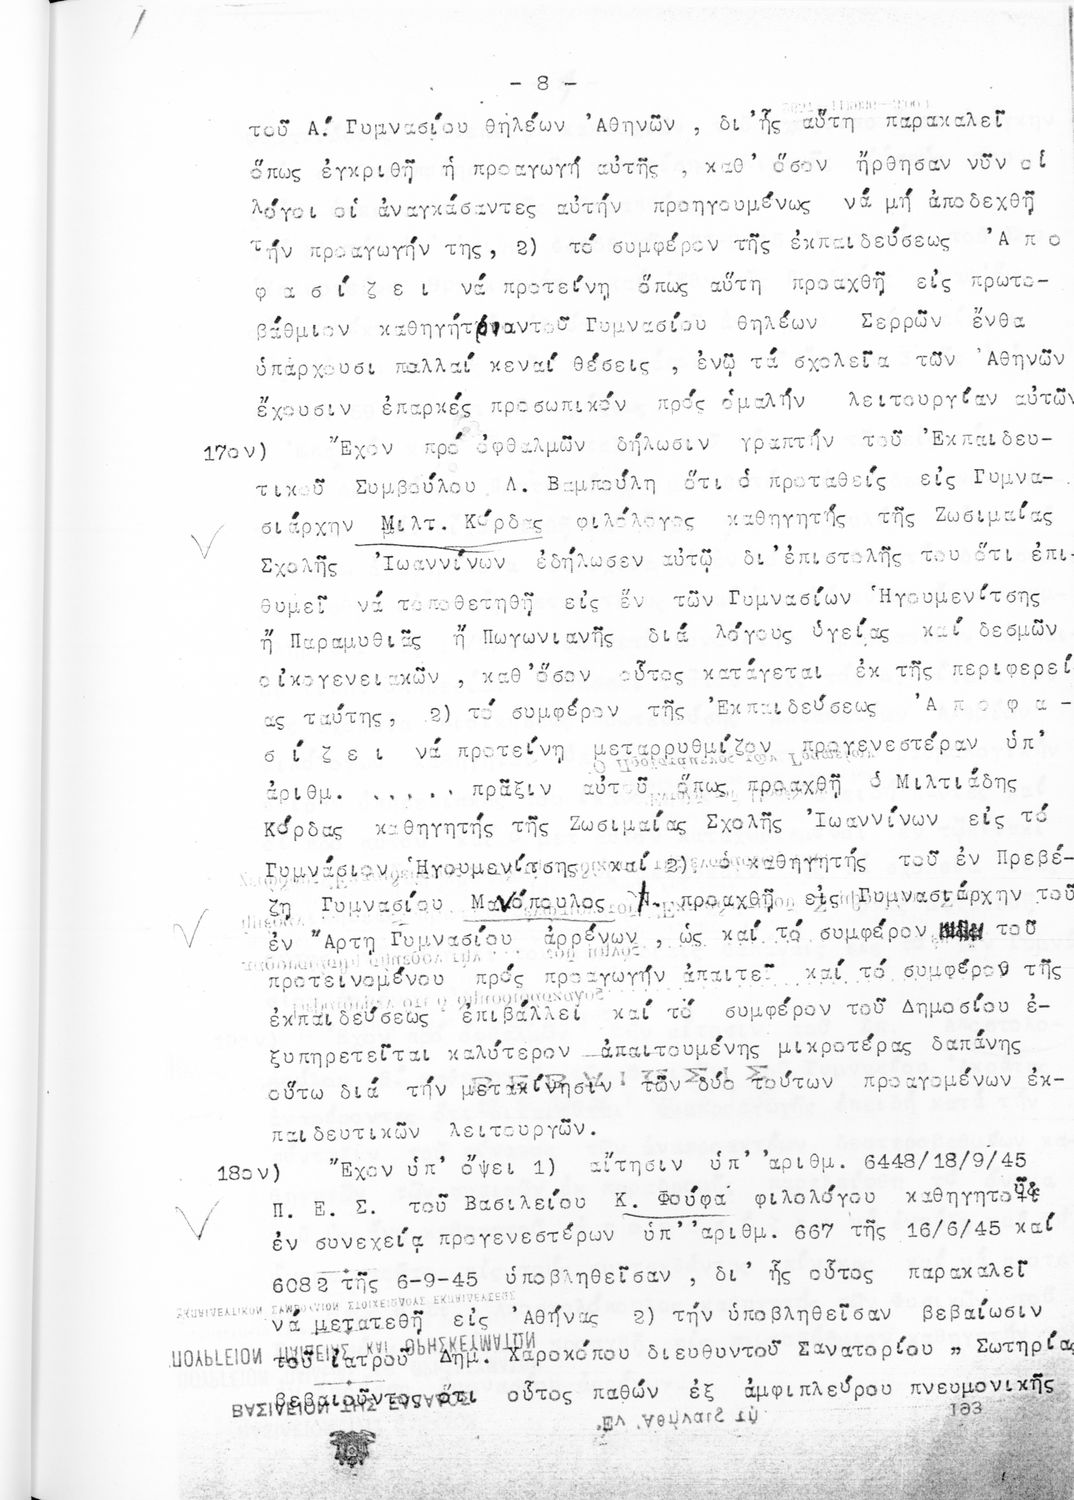 - 8 -
τοῦ Α΄. Γυμνασίου θηλέων Ἀθηνῶν , δι'ἧς αὕτη παρακαλεῖ
ὅπως ἐγκριθῇ ἡ προαγωγή αὐτῆς , καθ' ὅσον ἤρθησαν νῦν οἱ
λόγοι οἱ ἀναγκάσαντες αὐτήν προηγουμένως νά μή ἀποδεχθῇ
τήν προαγωγήν της, 2) τό συμφέρον τῆς ἐκπαιδεύσεως Ἀ π ο
φ α σ ί ζ ε ι νά προτείνῃ ὅπως αὕτη προαχθῇ εἰς πρωτο-
βάθμιον καθηγήτριαν τοῦ Γυμνασίου θηλέων Σερρῶν ἔνθα
ὑπάρχουσι παλλαί κεναί θέσεις , ἐνῷ τά σχολεῖα τῶν Ἀθηνῶν
ἔχουσιν ἐπαρκές προσωπικόν πρός ὁμαλήν λειτουργίαν αὐτῶν
17ον) Ἔχον πρό ὀφθαλμῶν δήλωσιν γραπτήν τοῦ Ἐκπαιδευ-
τικοῦ Συμβούλου Λ. Βαμπούλη ὅτι ὁ προταθείς εἰς Γυμνα-
σιάρχην Μιλτ. Κόρδας φιλόλογος καθηγητής τῆς Ζωσιμαίας
Σχολῆς Ἰωαννίνων ἐδήλωσεν αὐτῷ δι'ἐπιστολῆς του ὅτι ἐπι-
θυμεῖ νά τοποθετηθῇ εἰς ἕν τῶν Γυμνασίων Ἡγουμενίτσης
ἤ Παραμυθιᾶς ἤ Πωγωνιανῆς διά λόγους ὑγείας καί δεσμῶν
οἰκογενειακῶν , καθ'ὅσον οὗτος κατάγεται ἐκ τῆς περιφερεί
ας ταύτης, 2) τό συμφέρον τῆς Ἐκπαιδεύσεως Ἀ π ο φ α -
σ ί ζ ε ι νά προτείνῃ μεταρρυθμίζον προγενεστέραν ὑπ'
ἀριθμ. ..... πρᾶξιν αὐτοῦ ὅπως προαχθῇ ὁ Μιλτιάδης
Κόρδας καθηγητής τῆς Ζωσιμαίας Σχολῆς Ἰωαννίνων εἰς τό
Γυμνάσιον Ἡγουμενίτσης καί 2) ὁ καθηγητής τοῦ ἐν Πρεβέ-
ζῃ Γυμνασίου Μανόπουλος Λ. προαχθῇ εἰς Γυμνασιάρχην τοῦ
ἐν Ἄρτῃ Γυμνασίου ἀρρένων , ὡς καί τό συμφέρον τοῦ
προτεινομένου πρός προαγωγήν ἀπαιτεῖ καί τό συμφέρον τῆς
ἐκπαιδεύσεως ἐπιβάλλει καί τό συμφέρον τοῦ Δημοσίου ἐ-
ξυπηρετεῖται καλύτερον ἀπαιτουμένης μικροτέρας δαπάνης
οὕτω διά τήν μετακίνησιν τῶν δύο τούτων προαγομένων ἐκ-
παιδευτικῶν λειτουργῶν.
18ον) Ἔχον ὑπ' ὄψει 1) αἴτησιν ὑπ' ἀριθμ. 6448/18/9/45
Π. Ε. Σ. τοῦ Βασιλείου Κ. Φούφα φιλολόγου καθηγητοῦ
ἐν συνεχείᾳ προγενεστέρων ὑπ' ἀριθμ. 667 τῆς 16/6/45 καί
6082 τῆς 6-9-45 ὑποβληθεῖσαν , δι' ἧς οὗτος παρακαλεῖ
νά μετατεθῇ εἰς Ἀθήνας 2) τήν ὑποβληθεῖσαν βεβαίωσιν
τοῦ ἰατροῦ Δημ. Χαροκόπου διευθυντοῦ Σανατορίου „ Σωτηρίας
βεβαιοῦντος ὅτι οὗτος παθών ἐξ ἀμφιπλεύρου πνευμονικῆς